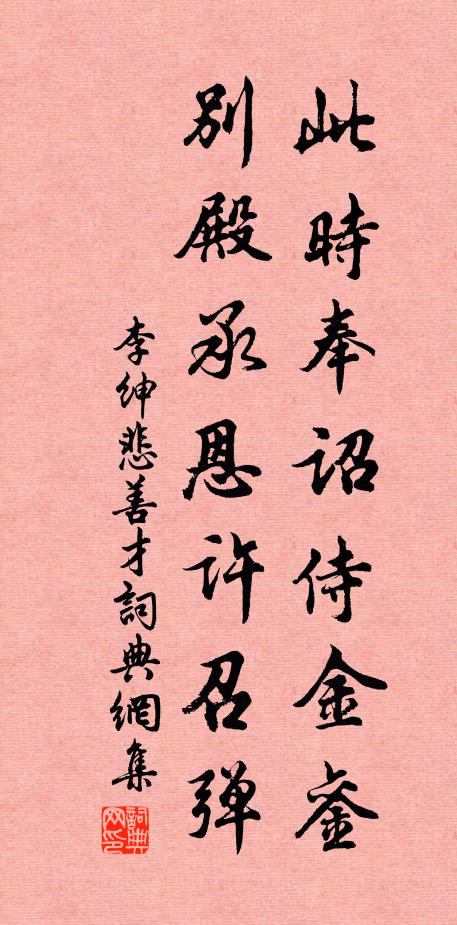 此時奉詔侍金銮
別殿承恩許召弹
李紳悲善才詞典網集
詞典
网印